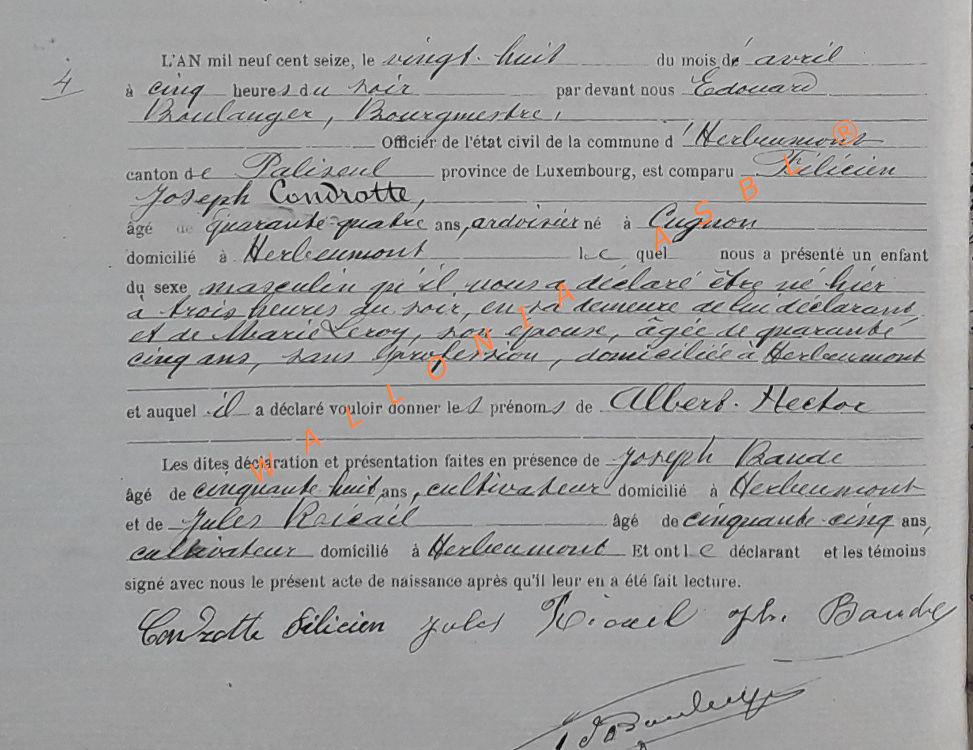 4
L'AN mil neuf cent seize, le vingt-huit du mois d' avril
à cinq heures du soir par devant nous Edouard
Boulanger, Bourgmestre,
Officier de l'état civil de la commune d'Herbeumont
canton de Paliseul province de Luxembourg, est comparu Félicien
Joseph Condrotte,
âgé de quarante-quatre ans, ardoisier né à Cugnon
domicilié à Herbeumont lequel nous a présenté un enfant
du sexe masculin qu'il nous a déclaré être né hier
à trois heures du soir, en sa demeure de lui déclarant
et de Marie Leroy, son épouse, âgée de quarante
cinq ans, sans profession, domiciliée à Herbeumont
et auquel il a déclaré vouloir donner les prénoms de Albert-Hector
Les dites déclaration et présentation faites en présence de Joseph Baude
âgé de cinquante huit ans, cultivateur domicilié à Herbeumont
et de Jules âgé de cinquante-cinq ans,
cultivateur domicilié à Herbeumont Et ont le déclarant et les témoins
signé avec nous le présent acte de naissance après qu'il leur en a été fait lecture.
Condrotte Félicien Jules Jph. Baude
WALLONIA ASBL ®